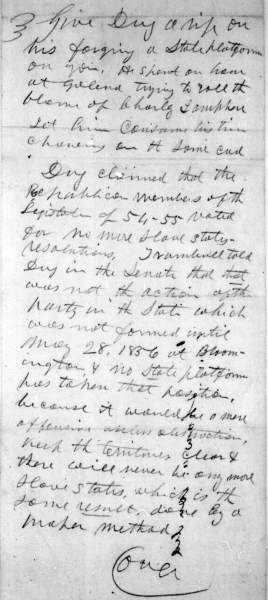 3
Give Dug a rip on
his forging a State platform
on you. He spent an hour
at Galena trying to roll the
blame of Charly Lamphier
Let him consume his time
chawing on the same cud
Dug claimed that the
Republican members of the
Legislature of 54-55 voted
for no more slave state
resolutions. Trumbull told
Dug in the Senate that that
was not the action of the
party in the State which
was not formed until
May 28, 1856 at Bloom-
ington & no State platform
has taken that position,
because it would be a mere
offensive useless abstraction.
Keep the territories clear &
there will never be any more
slave states, which is the
same result, done by a
method
over